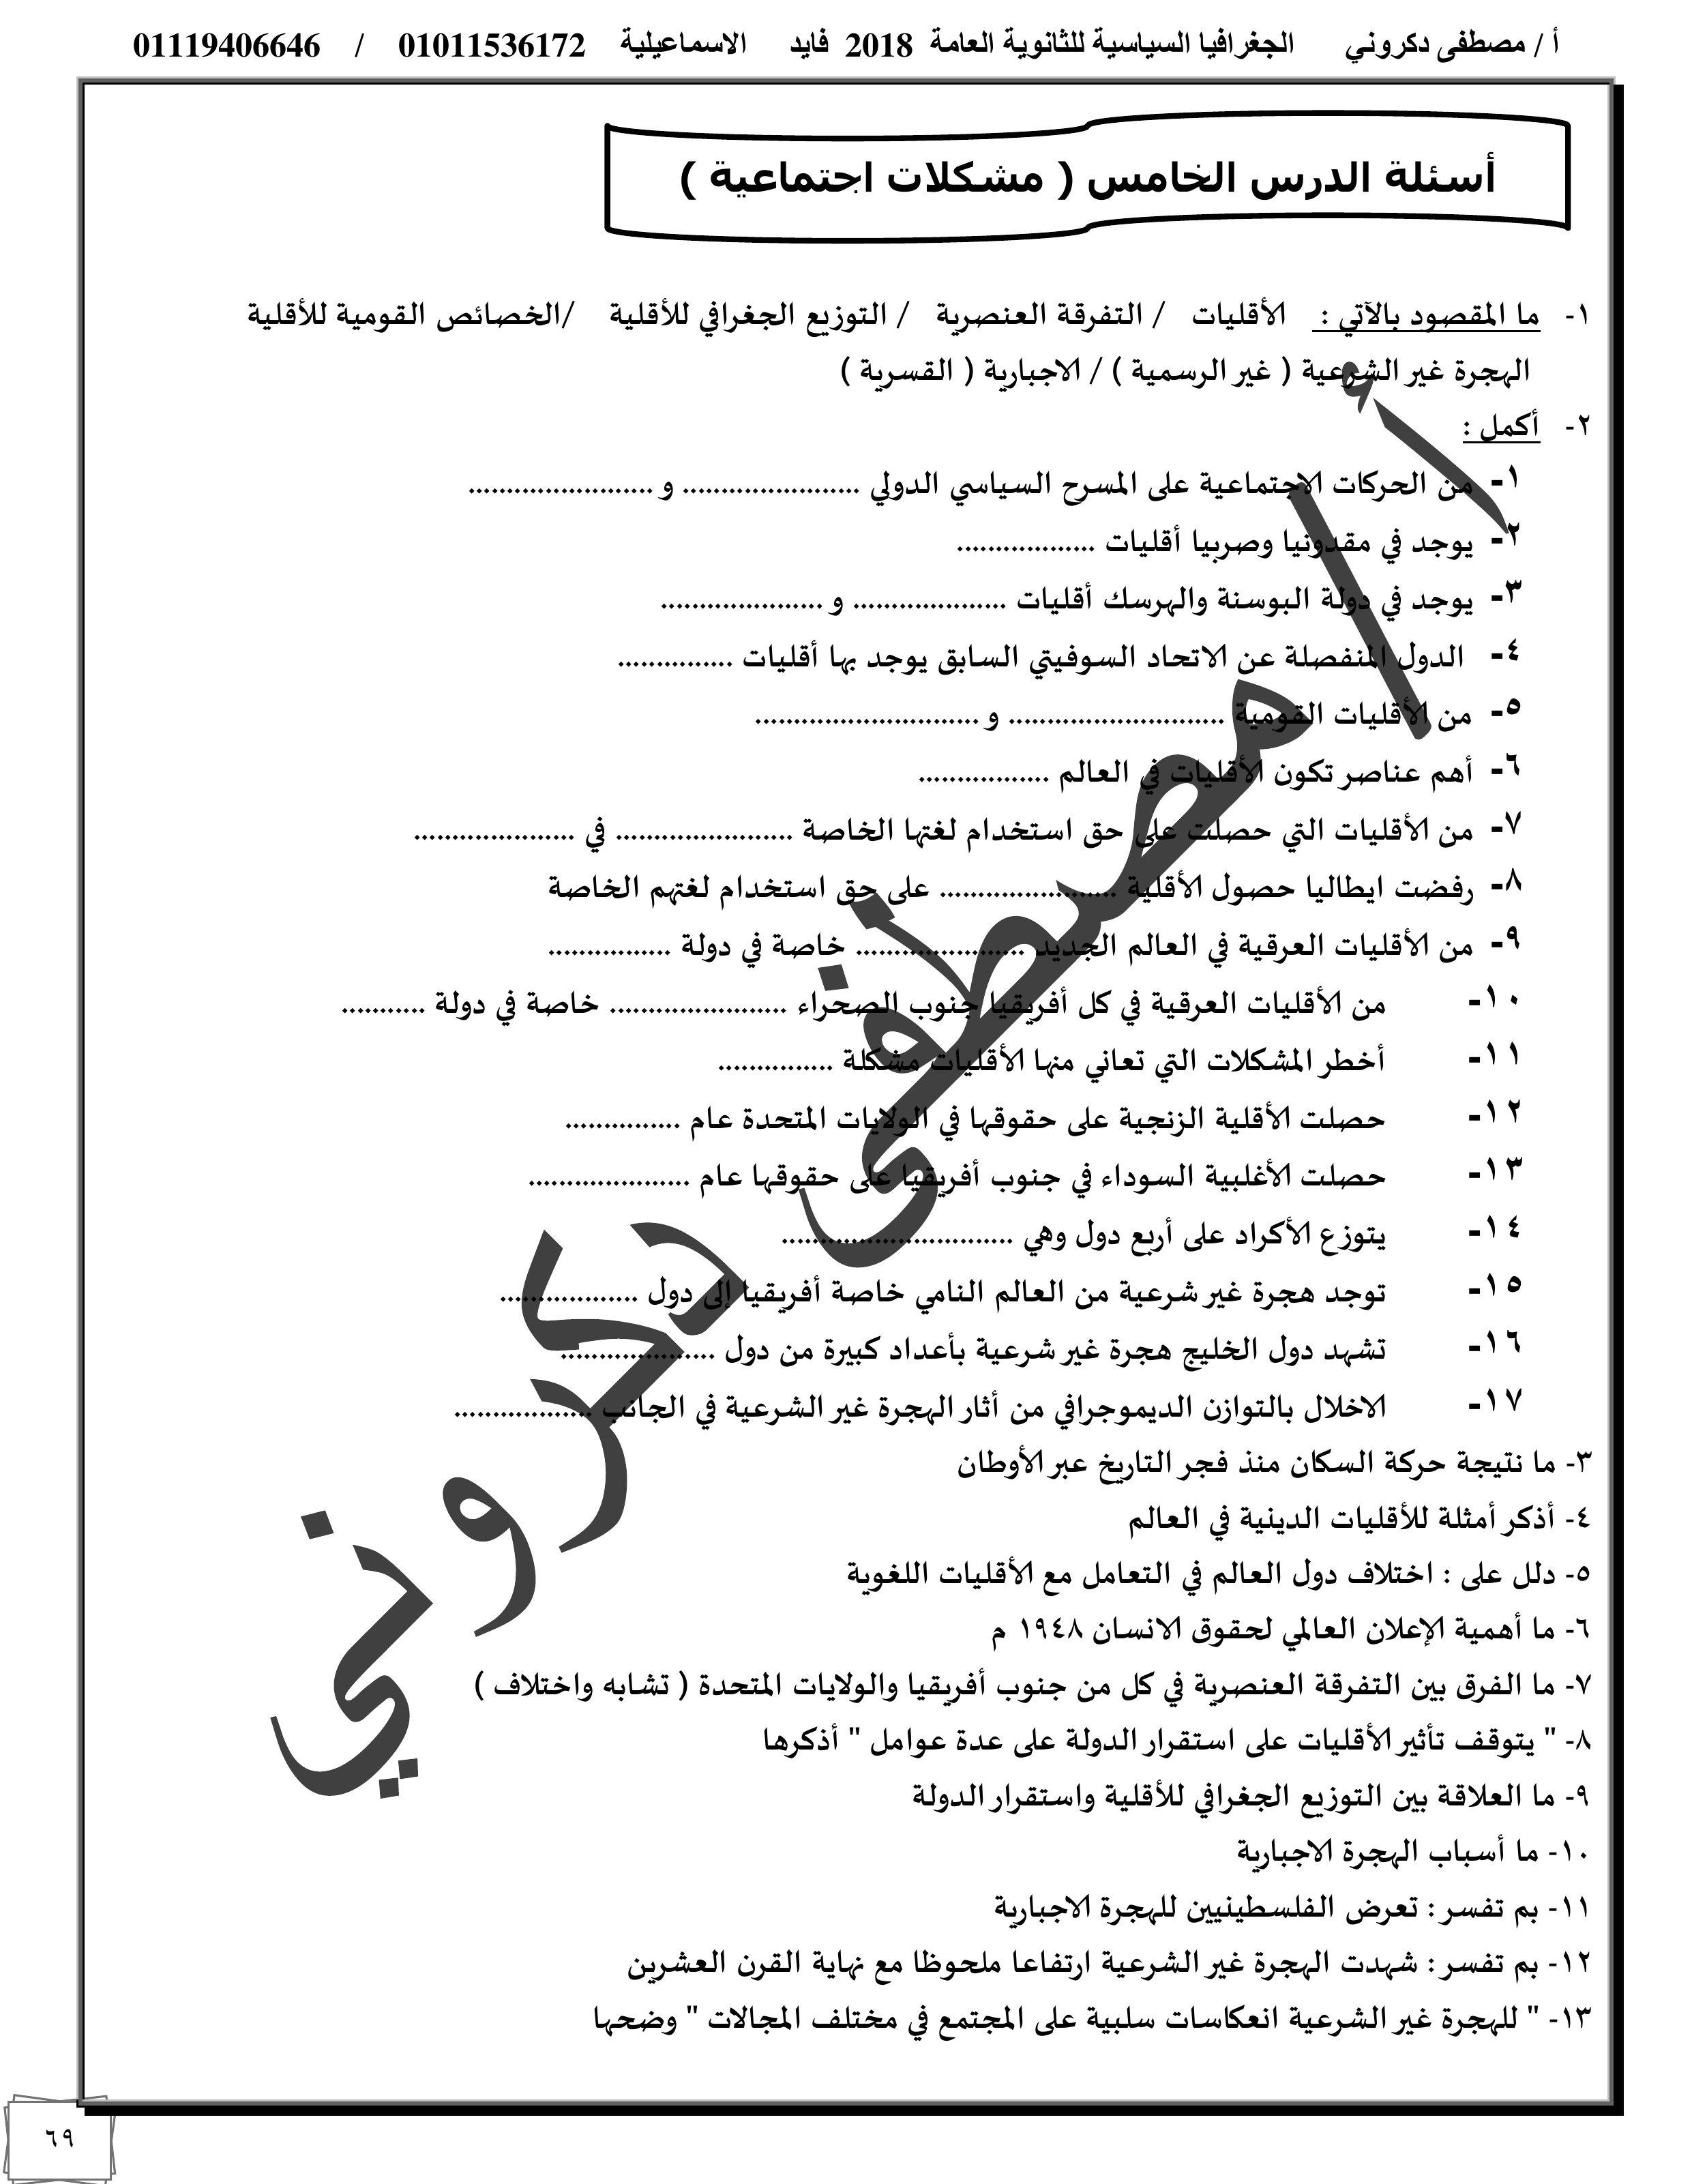 أ / مصطفى دكروني الجغرافيا السياسية للثانوية العامة 2018 فايد الاسماعيلية 01011536172 / 01119406646
أسئلة الدرس الخامس ( مشكلات اجتماعية )
١- ما المقصود بالآتي : الأقليات / التفرقة العنصرية / التوزيع الجغرافي للأقلية /الخصائص القومية للأقلية
الهجرة غير الشرعية ( غير الرسمية ) / الاجبارية ( القسرية )
٢- أكمل :
١- من الحركات الاجتماعية على المسرح السياسي الدولي ....................... و ........................
٢- يوجد في مقدونيا وصربيا أقليات ..................
٣- يوجد في دولة البوسنة والهرسك أقليات .................... و .....................
٤- الدول المنفصلة عن الاتحاد السوفيتي السابق يوجد بها أقليات ...............
٥- من الأقليات القومية ............................ و .............................
٦- أهم عناصر تكون الأقليات في العالم .................
٧- من الأقليات التي حصلت على حق استخدام لغتها الخاصة ....................... في .....................
٨- رفضت ايطاليا حصول الأقلية ....................... على حق استخدام لغتهم الخاصة
٩- من الأقليات العرقية في العالم الجديد ...................... خاصة في دولة ................
١٠- من الأقليات العرقية في كل أفريقيا جنوب الصحراء ....................... خاصة في دولة ...........
١١- أخطر المشكلات التي تعاني منها الأقليات مشكلة ...............
١٢- حصلت الأقلية الزنجية على حقوقها في الولايات المتحدة عام ...............
١٣- حصلت الأغلبية السوداء في جنوب أفريقيا على حقوقها عام .....................
١٤- يتوزع الأكراد على أربع دول وهي ..............................
١٥- توجد هجرة غير شرعية من العالم النامي خاصة أفريقيا إلى دول ..................
١٦- تشهد دول الخليج هجرة غير شرعية بأعداد كبيرة من دول ....................
١٧- الاخلال بالتوازن الديموجرافي من أثار الهجرة غير الشرعية في الجانب ..................
٣- ما نتيجة حركة السكان منذ فجر التاريخ عبر الأوطان
٤- أذكر أمثلة للأقليات الدينية في العالم
٥- دلل على : اختلاف دول العالم في التعامل مع الأقليات اللغوية
٦- ما أهمية الإعلان العالمي لحقوق الانسان ١٩٤٨ م
٧- ما الفرق بين التفرقة العنصرية في كل من جنوب أفريقيا والولايات المتحدة ( تشابه واختلاف )
٨- " يتوقف تأثير الأقليات على استقرار الدولة على عدة عوامل " أذكرها
٩- ما العلاقة بين التوزيع الجغرافي للأقلية واستقرار الدولة
١٠- ما أسباب الهجرة الاجبارية
١١- بم تفسر : تعرض الفلسطينيين للهجرة الاجبارية
١٢- بم تفسر : شهدت الهجرة غير الشرعية ارتفاعا ملحوظا مع نهاية القرن العشرين
١٣- " للهجرة غير الشرعية انعكاسات سلبية على المجتمع في مختلف المجالات " وضحها
أ / مصطفى دكروني
٦٩